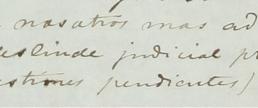 nosotros mas ad
deslinde judicial pr
estiones pendientes)